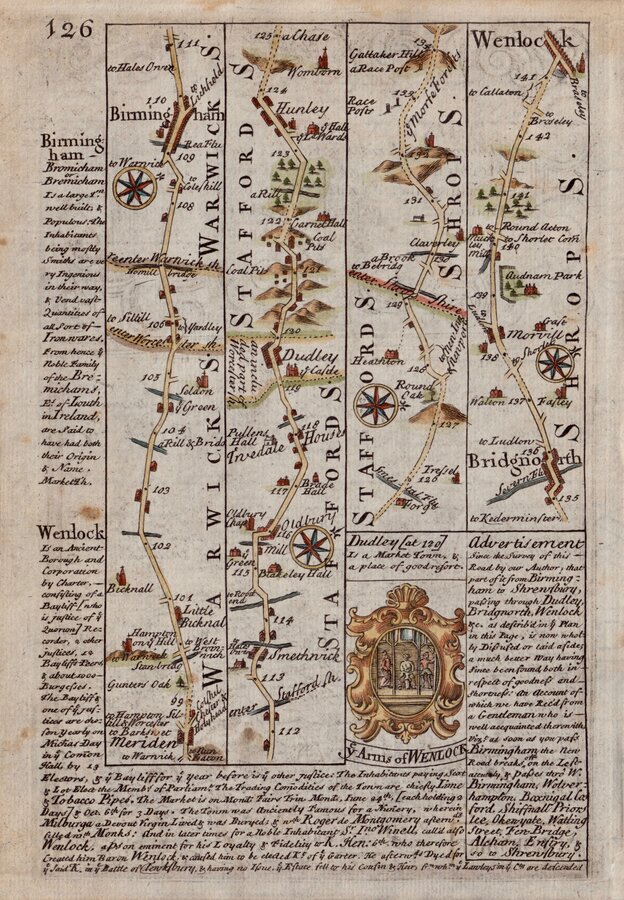 126
Birming
ham
Bromicham
or
Bremicham
Is a large Tn
well built, &
Populous. The
Inhabitants
being mostly
Smiths are ve
ry Ingenious
in their way,
& Vend vast
Quantities of
all Sort of
Iron wares.
From hence ye
Noble Family
of the Bre-
michams,
Es. of Louth
in Ireland,
are Said to
have had both
their Origin
& Name.
Market Th.
Wenlock
Is an Ancient
Borough and
Corporation
by Charter,
consisting of a
Bayliff [who
is justice of ye
Quorum] Re,
corder, 2 other
justices, 12
Bayliff Peers
& about 1000
Burgesses.
The Bayliff &
one of ye jus-
tices are cho-
sen yearly on
Michas Day
in ye Comon
Hall by 13
Electors, & ye Bayliff for ye year before is ye other justice: The Inhabitants paying Scot
& Lot Elect the Membrs of Parliamt. The Trading Comodities of the Town are chiefly Lime
& Tobacco Pipes. The Market is on Mond: Fairs Trin Mond, June 24th, (each holding 2
Days) & Oct. 6th for 3 Days. The Town was Anciently Famous for a Nunery, wherein
Milburga a Devout Virgin Lived & was Buryed; & wch Roger de Montgomery afterwds
filled wth Monks: And in later times for a Noble Inhabitant Sr. Ino Winell, call'd also
Wenlock, a pson eminent for his Loyalty & Fidelity to K. Hen: 6th, who therefore
Created him Baron Wenlock, & caused him to be elected Kt. of ye Garter. He afterwds Dyed for
ye Said K. in ye Battle of Tewksbury, & having no Issue, ye Estate fell to his Cousin & Heir, from whm ye Lawleys in ye Cty are descended
111
to Hales Owen
to Lichfield
110
Birmingham
Rea Flu
109
to Warwick
to Coleshill
108
reenter Warwick sh.
Homill bridge
to Sillill
106
Yardley
enter Worcester sh.
105
Seldon
ye Green
104
a Rill & Bridg
103
102
Bicknall
101
Little
Bicknal
Hampton
on ye Hill
to West Brom-
wich
to Warwick
Stanbridg
Gunters Oak
99
to Hampton
to Barkswel
Meriden
to Warwick
to Nun
Eaton
WARWICK S.
WARWICK S.
125
a Chase
Womborn
124
Hunley
ye Hall
123
a Rill
122
Garnet Hall
Coal
Pits
Coal Pits
121
120
Dudley
ye Castle
119
118
House
Pullens
Hall
Tivedale
117
Brade
Hall
Oldbury
Chap
Oldbury
116
Mill
ye
Green
115
Blakeley Hall
114
Smethwick
113
enter
Stafford Sh.
112
STAFFORD S
STAFFORD S
Gattaker Hill
134
a Race Post
Race
Posts
133
ye Morfe forrest
132
131
Claverley
130
a Brook
to Bobridg
enter Shrop Shire
129
Heathton
128
Round
Oak
127
Tressel
126
Forg
STAFFORD S
SHROP S.
Dudley [at 120]
Is a Market Town, &
a place of good resort.
ye Arms of WENLOCK
Wenlock
to Callaton
to Broseley
to
Broseley
142
141
Round Acton
to Shorlet Com
140
Muck
ley
mill
Audnam Park
139
Crofe
Morvill
138
Walton
137
Fasley
to Ludlow
136
Bridgnorth
Severn Flu
135
to Kederminster
SHROP S.
Advertisement
Since the Survey of this
Road by our Author, that
part of it from Birming-
ham to Shrewsbury,
passing through Dudley
Bridgnorth, Wenlock
&c. as describ'd in ye Plan
in this Page, is now whol-
ly Disused or laid aside;
a much better Way having
Since been found, both in
respect of goodness and
shortness: An Account of
which we have Recd. from
a Gentleman who is
well acquainted therewith
Viz. as soon as you pass
Birmingham the New
Road breaks, on the Left
acutely, & passes thro' W.
Birming, Wolver-
hampton, Boningal, Ca
ford, Shiffnall, Priors
lee, Okenyate, Watling
Street, Fen-Bridge,
Atcham, Emstry, &
so to Shrewsbury.